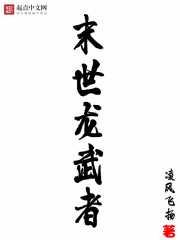 起点中文网
www.qidian.com
末世龙武者
凌风飞扬
著